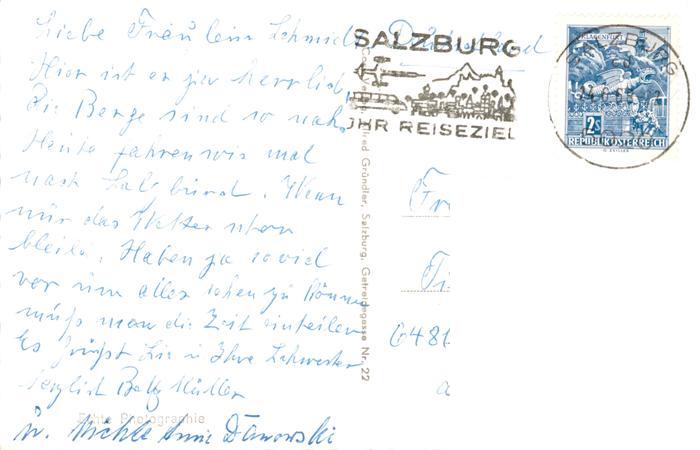 Liebe Fräulein Schmidt
Hier ist es ja herrlich
die Berge sind so nah,
Heute fahren wir mal
nach Salzburg. Wenn
nur das Wetter schön
bleibt. Haben ja soviel
vor um alles sehen zu können
muß man die Zeit einteilen
Es grüßt Sie u Ihre Schwester
herzlich Betty Müller
u. Anni Danowski
Echte Photographie
Gründler, Salzburg, Getreidegasse Nr. 22
SALZBURG
IHR REISEZIEL
KLAGENFURT
2S
REPUBLIK ÖSTERREICH
SALZBURG
Deutschland
Fr
648